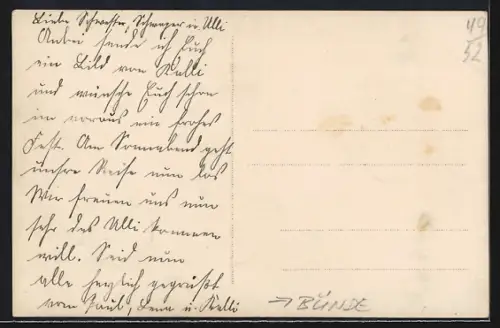 Liebe Schwester, Schwager u. Ulli
Anbei sende ich Euch
ein Bild von Kalli
und wünsche Euch schon
im voraus ein frohes
Fest. Am Sonnabend geht
unsre Reise nun los
Wir freuen uns nun
sehr das Ulli kommen
will. Seid nun
alle herzlich gegrüßt
von Paul, Lena u. Kalli
49
52
→ BÜNDE